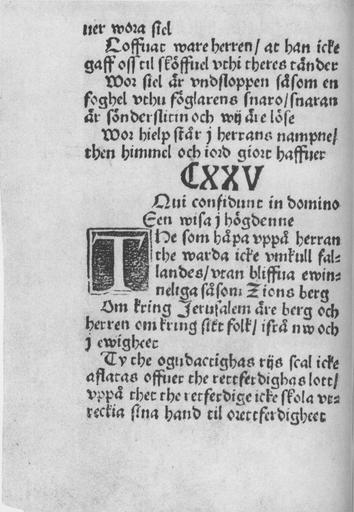 uer wora siel
Loffuat ware herren / at han icke
gaff oss til sköffuel vthi theres tänder
Wor siel är vndsloppen såsom en
foghel vthu föglarens snaro / snaran
är sönderslitin och wij äre löse
Wor hielp står j herrans nampne /
then himmel och iord giort haffuer
CXXV
Qui confidunt in domino
Een wisa j högdenne
THe som håpa vppå herran
the warda icke vmkull fal-
landes / vtan bliffua ewin-
neliga såsom Zions berg
Om kring Jerusalem äre berg och
herren om kring sitt folk / ifrå nw och
j ewigheet
Ty the ogudactighas rijs scal icke
aflatas offuer the rettferdighas lott /
vppå thet the retferdige icke skola vt-
reckia sina hand til orettferdigheet